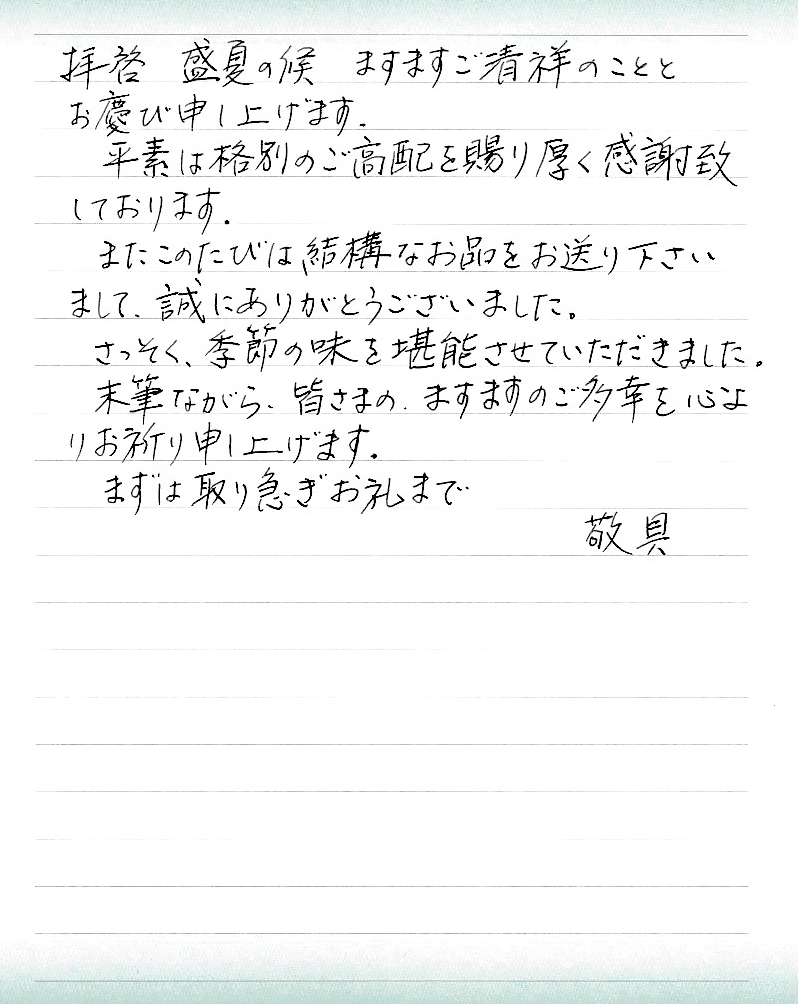 拝啓 盛夏の候 ますますご清祥のことと
お慶び申し上げます.
平素は格別のご高配を賜り厚く感謝致
しております.
またこのたびは結構なお品をお送り下さい
まして、誠にありがとうございました。
さっそく、季節の味を堪能させていただきました。
末筆ながら、皆さまの、ますますのご多幸を心よ
りお祈り申し上げます.
まずは取り急ぎお礼まで
敬具